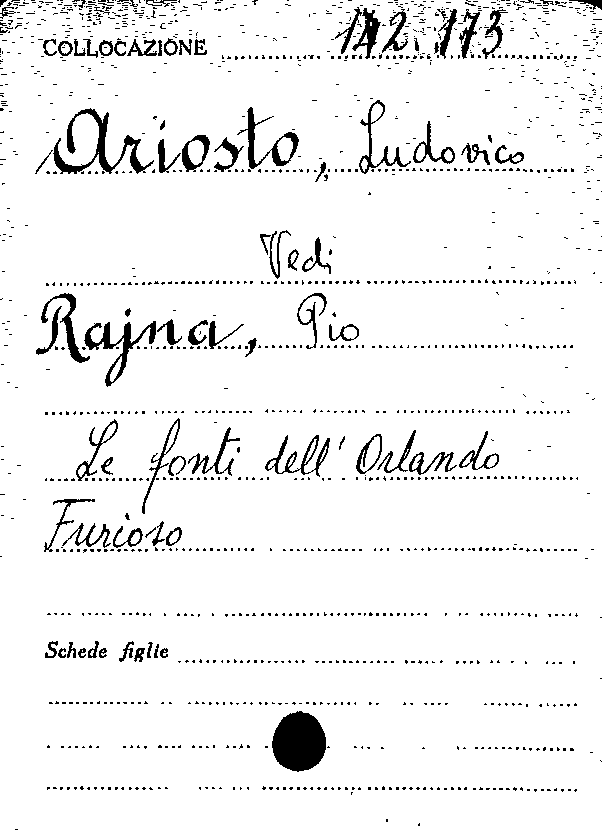 COLLOCAZIONE 142.173
Ariosto, Ludovico
Vedi
Rajna, Pio
Le fonti dell'Orlando
Furioso
Schede figlie